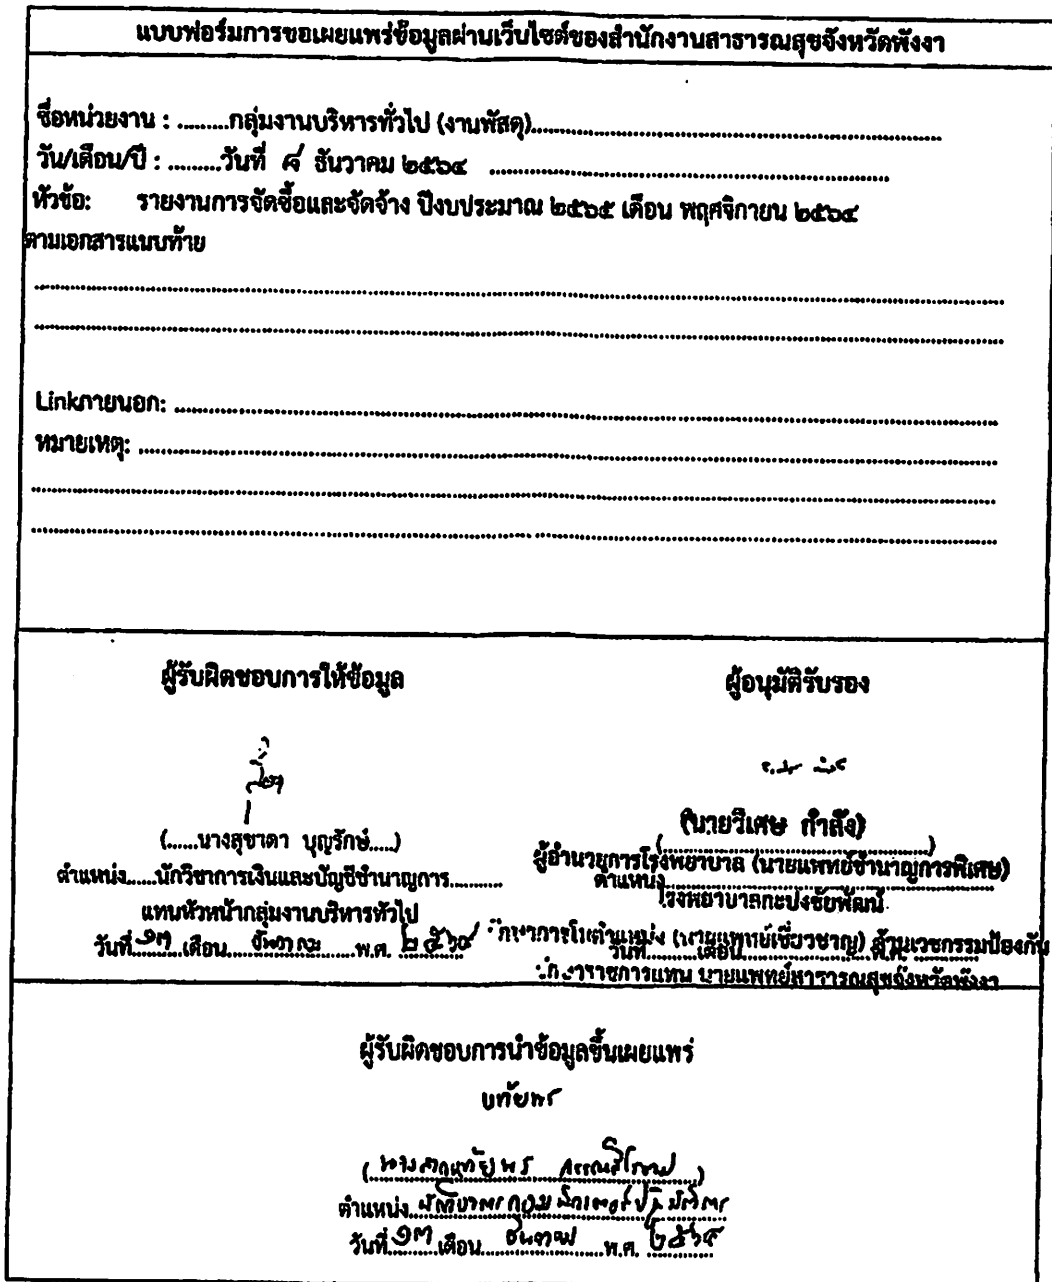 แบบฟอร์มการขอเผยแพร่ข้อมูลผ่านเว็บไซต์ของสำนักงานสาธารณสุขจังหวัดพังงา
ชื่อหน่วยงาน : .........กลุ่มงานบริหารทั่วไป (งานพัสดุ)..........
วัน/เดือน/ปี : .........วันที่ ๘ ธันวาคม ๒๕๖๔ ..........
หัวข้อ: รายงานการจัดซื้อและจัดจ้าง ปีงบประมาณ ๒๕๖๕ เดือน พฤศจิกายน ๒๕๖๔
ตามเอกสารแนบท้าย
Linkภายนอก: ..........
หมายเหตุ: ..........
ผู้รับผิดชอบการให้ข้อมูล
ผู้อนุมัติรับรอง
(......นางสุชาดา บุญรักษ์.....)
ตำแหน่ง......นักวิชาการเงินและบัญชีชำนาญการ..........
แทนหัวหน้ากลุ่มงานบริหารทั่วไป
วันที่ ๑๓ เดือน ธันวาคม พ.ศ. ๒๕๖๔
(นายวิเศษ กำลัง)
ผู้อำนวยการโรงพยาบาล (นายแพทย์ชำนาญการพิเศษ)
ตำแหน่ง
โรงพยาบาลกะปงชัยพัฒน์
รักษาการในตำแหน่ง (นายแพทย์เชี่ยวชาญ) ด้านเวชกรรมป้องกัน
วันที่..........เดือน..........พ.ศ. ..........
รักษาราชการแทน นายแพทย์สาธารณสุขจังหวัดพังงา
ผู้รับผิดชอบการนำข้อมูลขึ้นเผยแพร่
ตำแหน่ง นักวิชาการคอมพิวเตอร์ปฏิบัติการ
วันที่ ๑๓ เดือน ธันวาคม พ.ศ. ๒๕๖๔